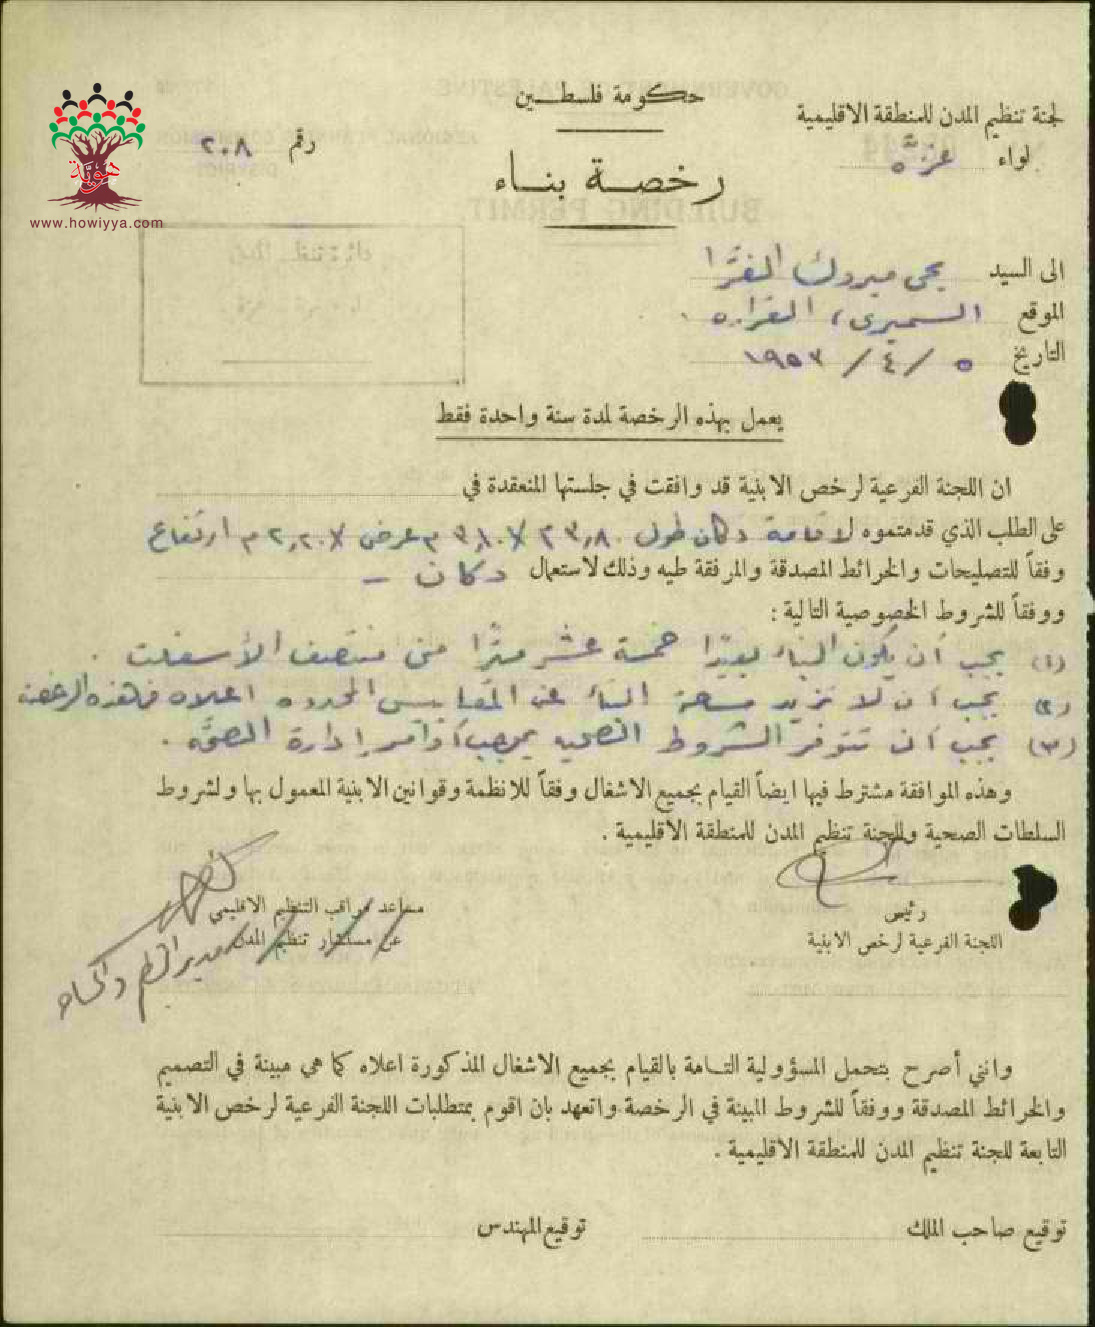 هوية
www.howiyya.com
حكومة فلسطين
لجنة تنظيم المدن للمنطقة الاقليمية
لواء غزة
رقم ٢٠٨
رخصة بناء
الى السيد يحي مبروك الفرّا
الموقع السميرى، القراره
التاريخ ٥ / ٤ / ١٩٥٣
يعمل بهذه الرخصة لمدة سنة واحدة فقط
ان اللجنة الفرعية لرخص الابنية قد وافقت في جلستها المنعقدة في
على الطلب الذي قدمتموه لاقامة دكان طول عرض ٢,٢٠ م ارتفاع
وفقاً للتصليحات والخرائط المصدقة والمرفقة طيه وذلك لاستعمال دكان -
ووفقاً للشروط الخصوصية التالية :
(١) يجب أن يكون البناء بعيدًا خمسة عشر مترًا من منتصف الأسفلت .
(٢) يجب أن لا تزيد مساحة البناء عن المقاييس المحدده اعلاه في هذه الرخصة
(٣) يجب أن تتوفر الشروط الصحيه بموجب أوامر إدارة الصحّه .
وهذه الموافقة مشترط فيها ايضاً القيام بجميع الاشغال وفقاً للانظمة وقوانين الابنية المعمول بها ولشروط
السلطات الصحية وللجنة تنظيم المدن للمنطقة الاقليمية .
رئيس
اللجنة الفرعية لرخص الابنية
مساعد مراقب التنظيم الاقليمي
عن مستشار تنظيم المدن
مدير
وانني أصرح بتحمل المسؤولية التامة بالقيام بجميع الاشغال المذكورة اعلاه كما هي مبينة في التصميم
والخرائط المصدقة ووفقاً للشروط المبينة في الرخصة واتعهد بان اقوم بمتطلبات اللجنة الفرعية لرخص الابنية
التابعة للجنة تنظيم المدن للمنطقة الاقليمية .
توقيع صاحب الملك
توقيع المهندس